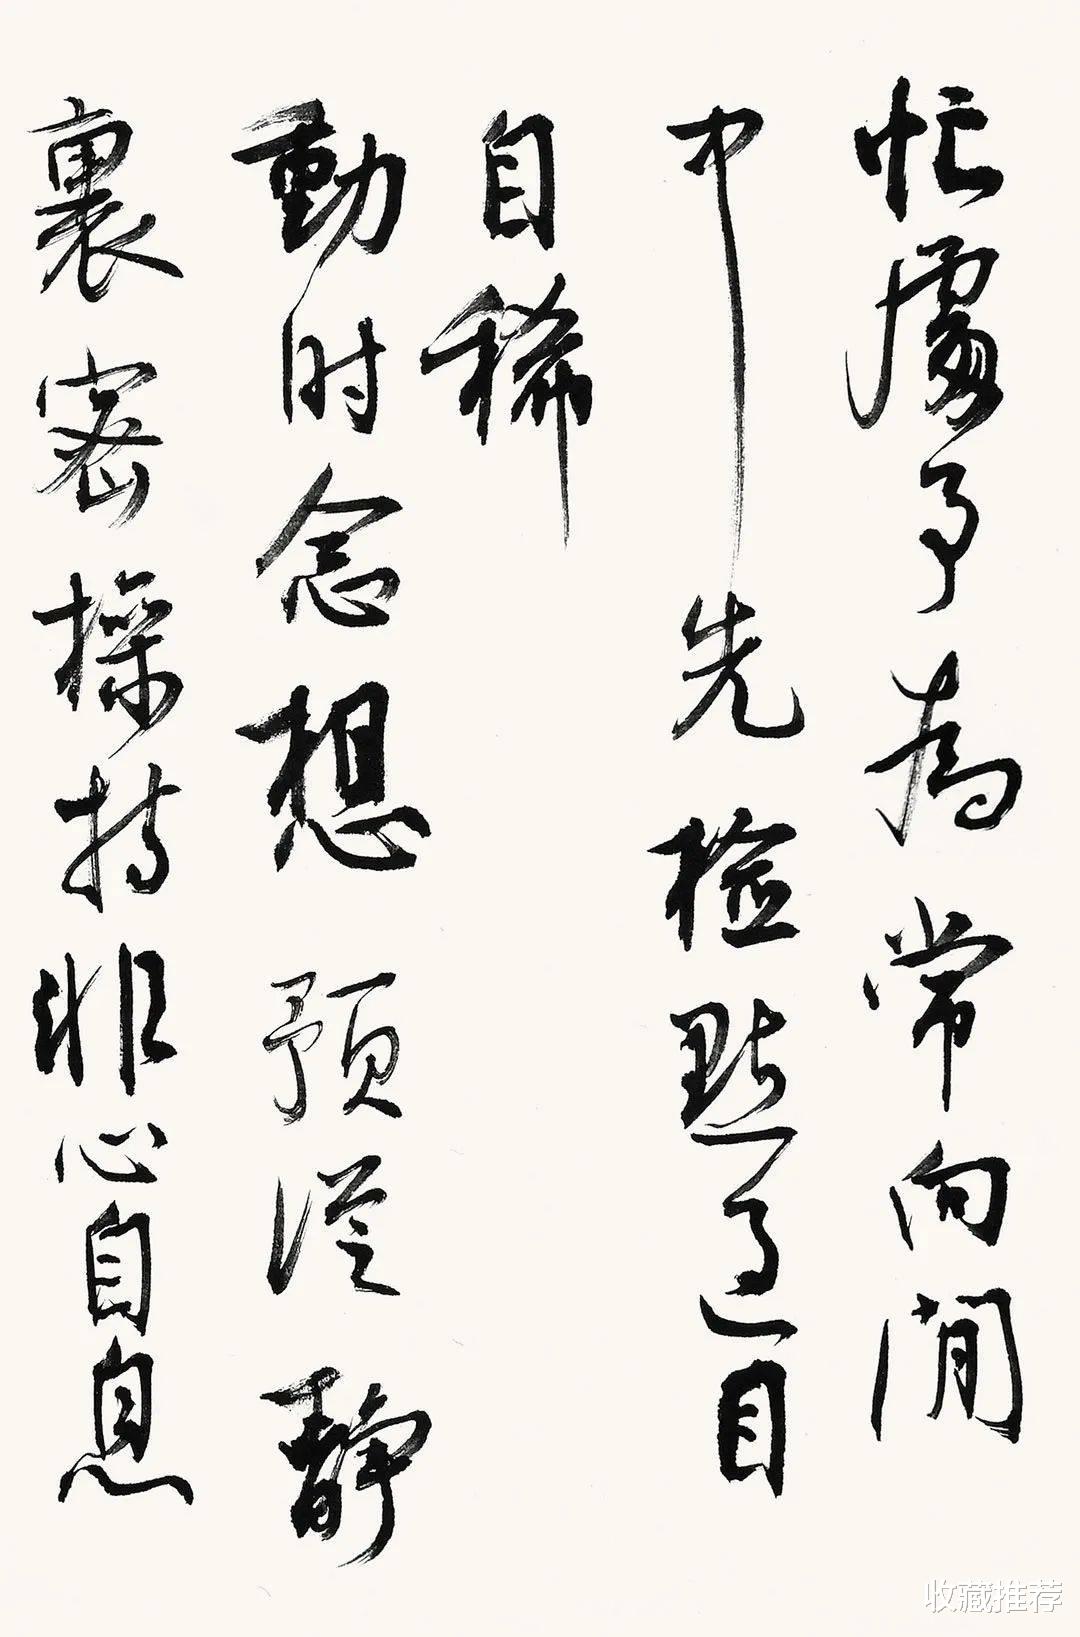 忙處事為常向閒
中先檢點過目
自稀
動时念想預從靜
裏密操持非心自息
收藏推荐